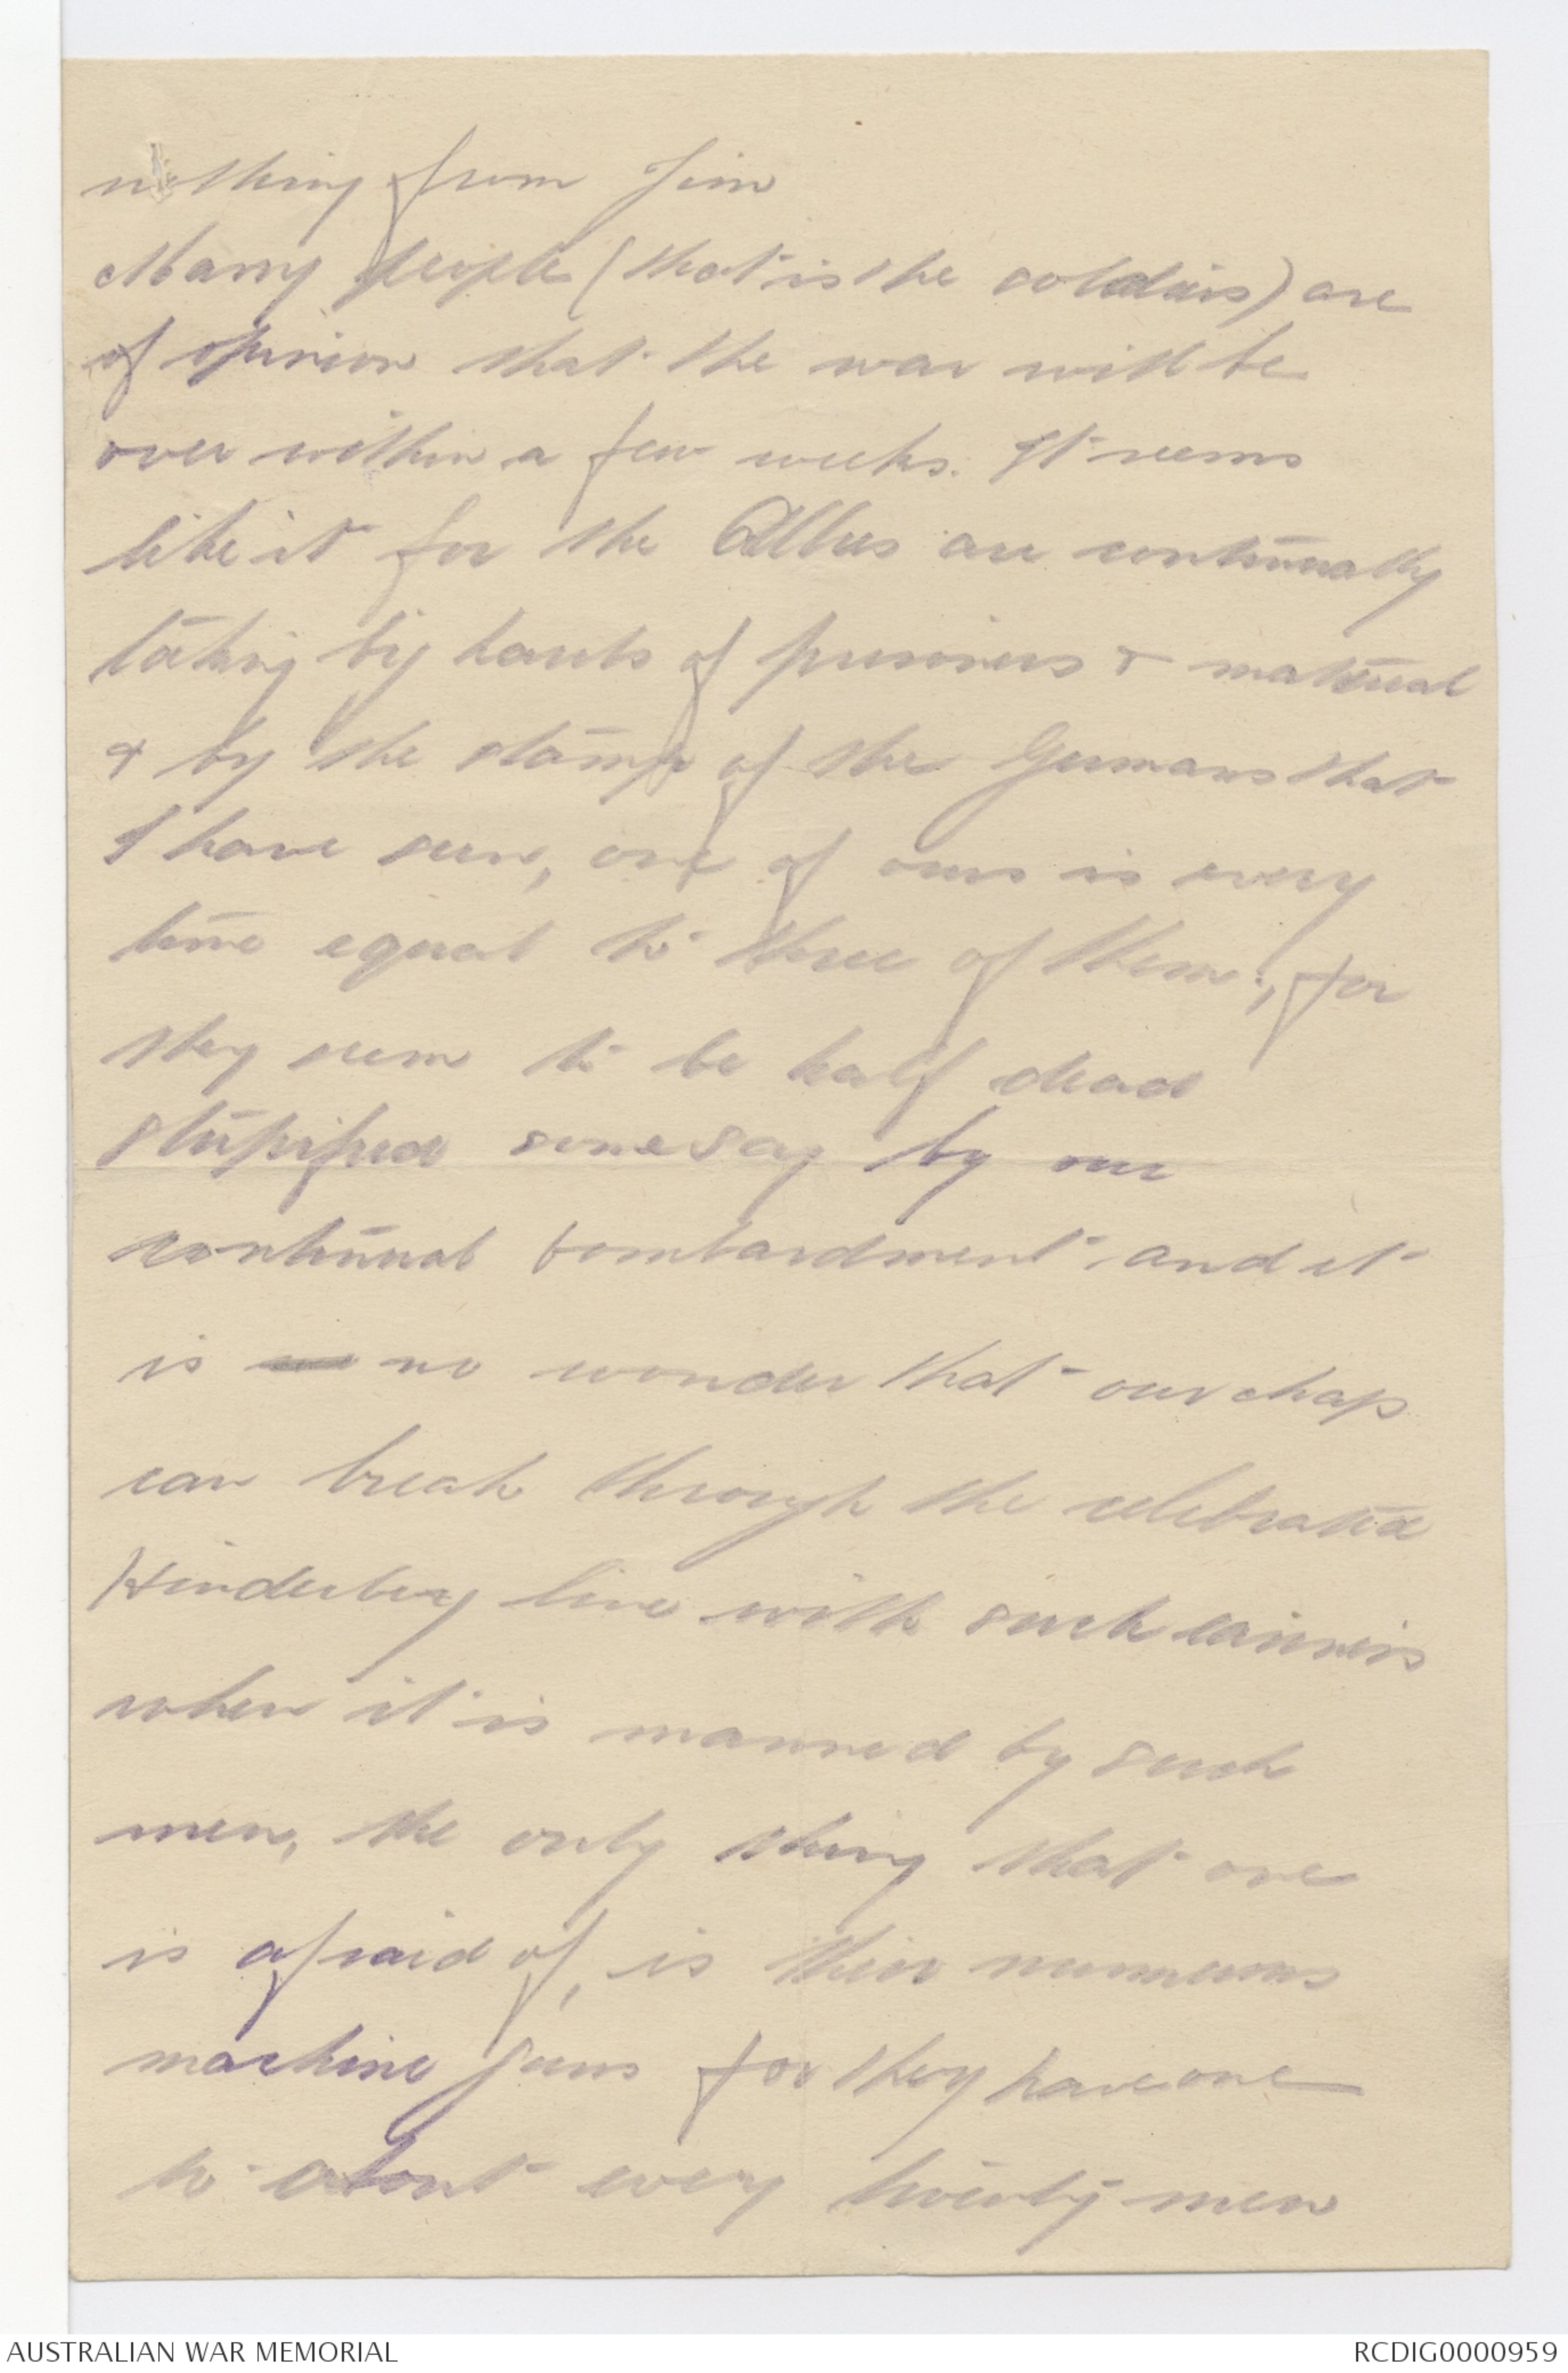 nothing from Jim
Many people (that is the soldiers) are
of opinion that the war will be
over within a few weeks. It seems
like it for the Allies are continually
taking big hauls of prisoners & material
& by the stamp of the Germans that
I have seen, one of ours is every
time equal to three of them, for
they seem to be half dead
stupified some say by our
continual bombardment and it
is no wonder that our chaps
can break through the celebrated
Hinderburg line with such
when it is manned by such
men, the only thing that one
is afraid of, is their numerous
machine guns for they have one
to about every twenty men
AUSTRALIAN WAR MEMORIAL
RCDIG0000959